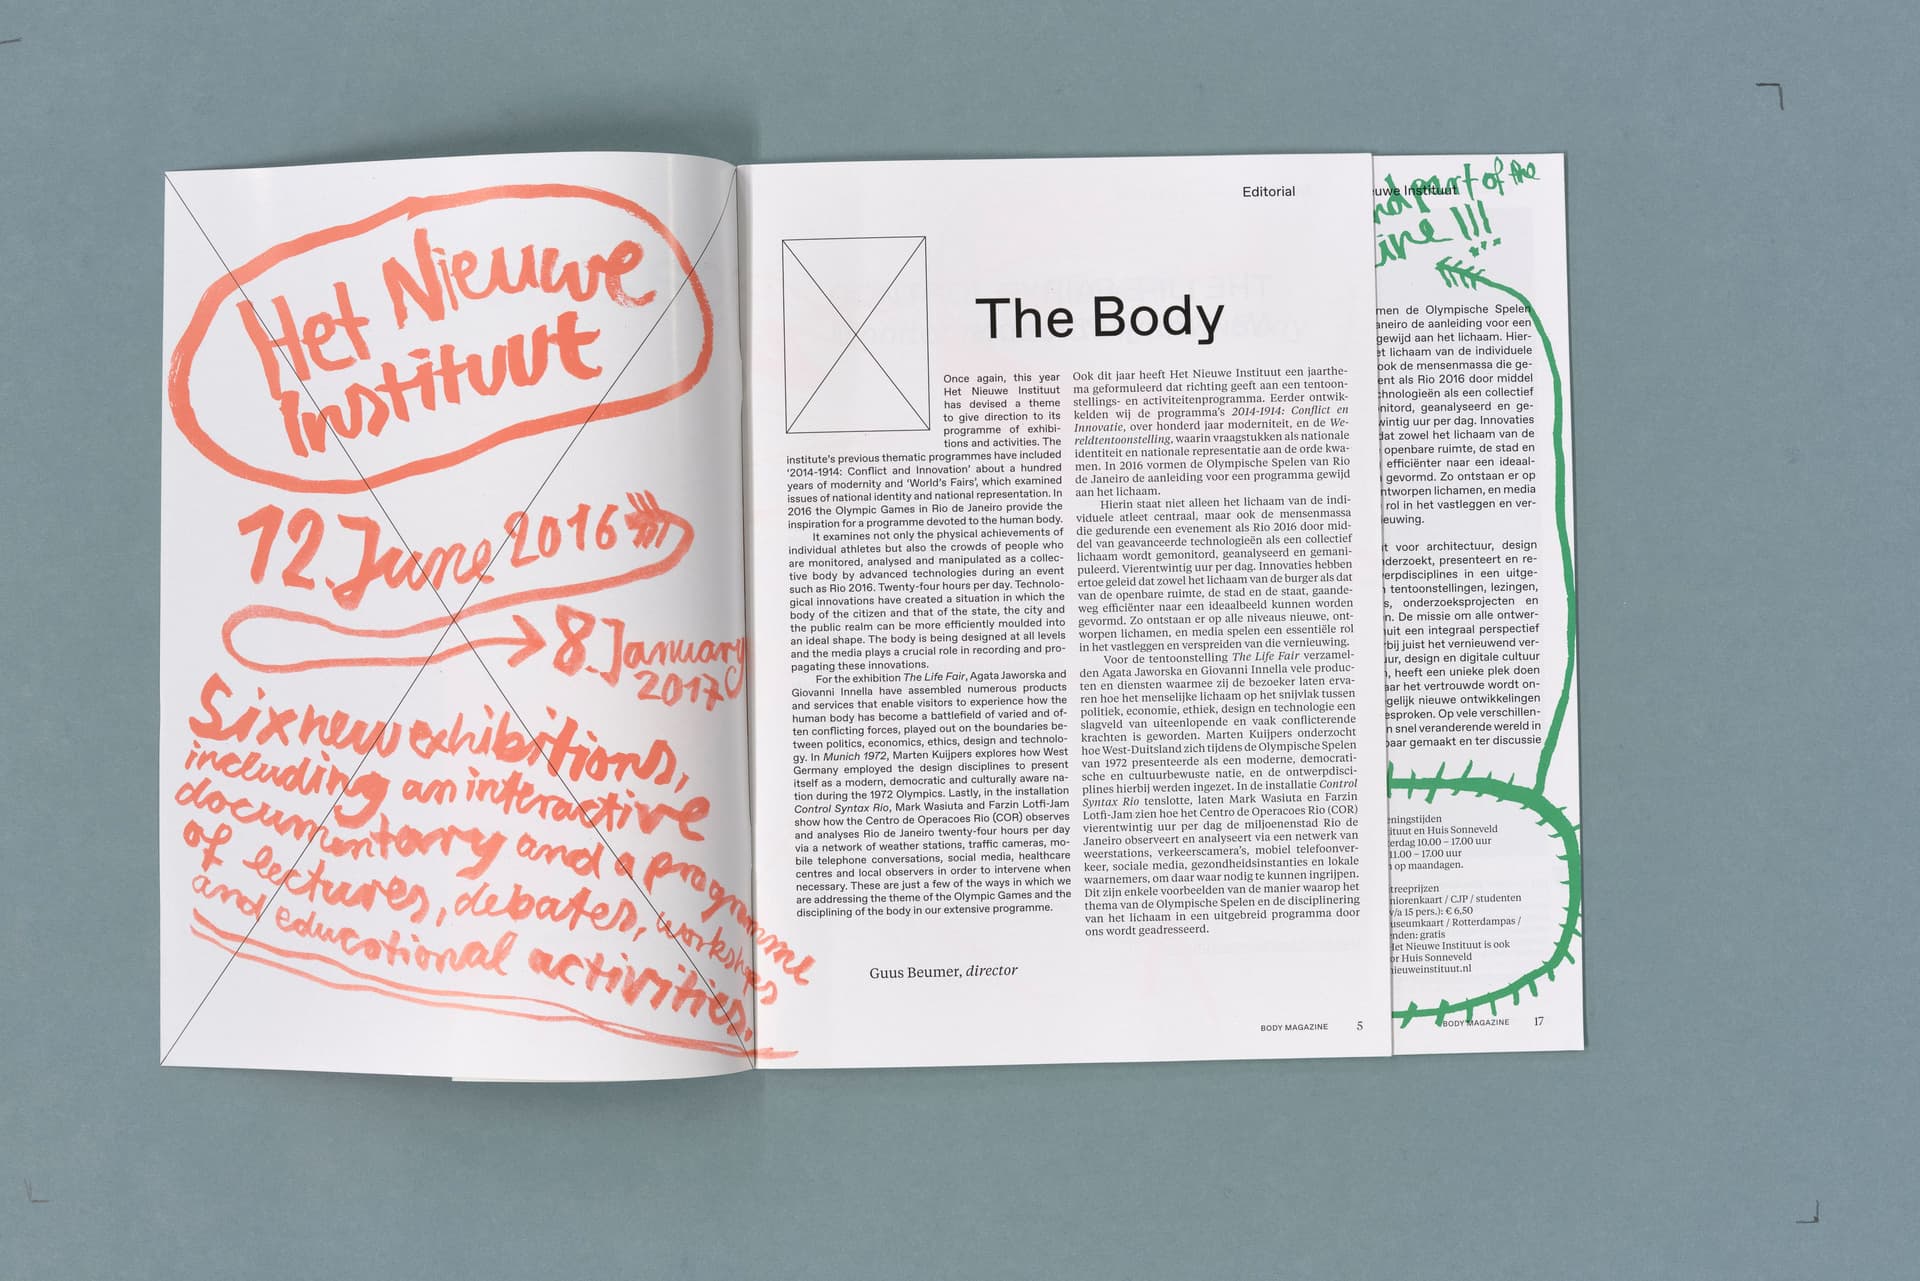 Het Nieuwe
Instituut
12. June 2016
8. January
2017
Six new exhibitions,
including an interactive
documentary and a programme
of lectures, debates, workshops
and educational activities.
Editorial
The Body
Once again, this year
Het Nieuwe Instituut
has devised a theme
to give direction to its
programme of exhibi-
tions and activities. The
institute's previous thematic programmes have included
‘2014-1914: Conflict and Innovation’ about a hundred
years of modernity and ‘World’s Fairs’, which examined
issues of national identity and national representation. In
2016 the Olympic Games in Rio de Janeiro provide the
inspiration for a programme devoted to the human body.
It examines not only the physical achievements of
individual athletes but also the crowds of people who
are monitored, analysed and manipulated as a collec-
tive body by advanced technologies during an event
such as Rio 2016. Twenty-four hours per day. Technolo-
gical innovations have created a situation in which the
body of the citizen and that of the state, the city and
the public realm can be more efficiently moulded into
an ideal shape. The body is being designed at all levels
and the media plays a crucial role in recording and pro-
pagating these innovations.
For the exhibition The Life Fair, Agata Jaworska and
Giovanni Innella have assembled numerous products
and services that enable visitors to experience how the
human body has become a battlefield of varied and of-
ten conflicting forces, played out on the boundaries be-
tween politics, economics, ethics, design and technolo-
gy. In Munich 1972, Marten Kuijpers explores how West
Germany employed the design disciplines to present
itself as a modern, democratic and culturally aware na-
tion during the 1972 Olympics. Lastly, in the installation
Control Syntax Rio, Mark Wasiuta and Farzin Lotfi-Jam
show how the Centro de Operacoes Rio (COR) observes
and analyses Rio de Janeiro twenty-four hours per day
via a network of weather stations, traffic cameras, mo-
bile telephone conversations, social media, healthcare
centres and local observers in order to intervene when
necessary. These are just a few of the ways in which we
are addressing the theme of the Olympic Games and the
disciplining of the body in our extensive programme.
Ook dit jaar heeft Het Nieuwe Instituut een jaarthe-
ma geformuleerd dat richting geeft aan een tentoon-
stellings- en activiteitenprogramma. Eerder ontwik-
kelden wij de programma’s 2014-1914: Conflict en
Innovatie, over honderd jaar moderniteit, en de We-
reldtentoonstelling, waarin vraagstukken als nationale
identiteit en nationale representatie aan de orde kwa-
men. In 2016 vormen de Olympische Spelen van Rio
de Janeiro de aanleiding voor een programma gewijd
aan het lichaam.
Hierin staat niet alleen het lichaam van de indi-
viduele atleet centraal, maar ook de mensenmassa
die gedurende een evenement als Rio 2016 door mid-
del van geavanceerde technologieën als een collectief
lichaam wordt gemonitord, geanalyseerd en gemani-
puleerd. Vierentwintig uur per dag. Innovaties hebben
ertoe geleid dat zowel het lichaam van de burger als dat
van de openbare ruimte, de stad en de staat, gaande-
weg efficiënter naar een ideaalbeeld kunnen worden
gevormd. Zo ontstaan er op alle niveaus nieuwe, ont-
worpen lichamen, en media spelen een essentiële rol
in het vastleggen en verspreiden van die vernieuwing.
Voor de tentoonstelling The Life Fair verzamel-
den Agata Jaworska en Giovanni Innella vele produc-
ten en diensten waarmee zij de bezoeker laten erva-
ren hoe het menselijke lichaam op het snijvlak tussen
politiek, economie, ethiek, design en technologie een
slagveld van uiteenlopende en vaak conflicterende
krachten is geworden. Marten Kuijpers onderzocht
hoe West-Duitsland zich tijdens de Olympische Spelen
van 1972 presenteerde als een moderne, democrati-
sche en cultuurbewuste natie, en de ontwerpdisci-
plines hierbij werden ingezet. In de installatie Control
Syntax Rio tenslotte, laten Mark Wasiuta en Farzin
Lotfi-Jam zien hoe het Centro de Operacoes Rio (COR)
vierentwintig uur per dag de miljoenenstad Rio de
Janeiro observeert en analyseert via een netwerk van
weerstations, verkeerscamera’s, mobiel telefoonver-
keer, sociale media, gezondheidsinstanties en lokale
waarnemers, om daar waar nodig te kunnen ingrijpen.
Dit zijn enkele voorbeelden van de manier waarop het
thema van de Olympische Spelen en de disciplinering
van het lichaam in een uitgebreid programma door
ons wordt geadresseerd.
Guus Beumer, director
BODY MAGAZINE 5
part of the
!!!
Instituut
men de Olympische Spelen
aneiro de aanleiding voor een
gewijd aan het lichaam. Hier-
et lichaam van de individuele
ook de mensenmassa die ge-
ent als Rio 2016 door middel
chnologieën als een collectief
nitord, geanalyseerd en ge-
wintig uur per dag. Innovaties
dat zowel het lichaam van de
openbare ruimte, de stad en
efficiënter naar een ideaal-
gevormd. Zo ontstaan er op
ntworpen lichamen, en media
rol in het vastleggen en ver-
euwing.
t voor architectuur, design
derzoekt, presenteert en re-
erpdisciplines in een uitge-
tentoonstellingen, lezingen,
s, onderzoeksprojecten en
n. De missie om alle ontwer-
uit een integraal perspectief
bij juist het vernieuwend ver-
ur, design en digitale cultuur
, heeft een unieke plek doen
aar het vertrouwde wordt on-
gelijk nieuwe ontwikkelingen
esproken. Op vele verschillen-
n snel veranderende wereld in
baar gemaakt en ter discussie
eningstijden
ituut en Huis Sonneveld
erdag 10.00 – 17.00 uur
11.00 – 17.00 uur
op maandagen.
treeprijzen
niorenkaart / CJP / studenten
v/a 15 pers.): € 6,50
useumkaart / Rotterdampas /
nden: gratis
Het Nieuwe Instituut is ook
or Huis Sonneveld
nieuweinstituut.nl
BODY MAGAZINE 17